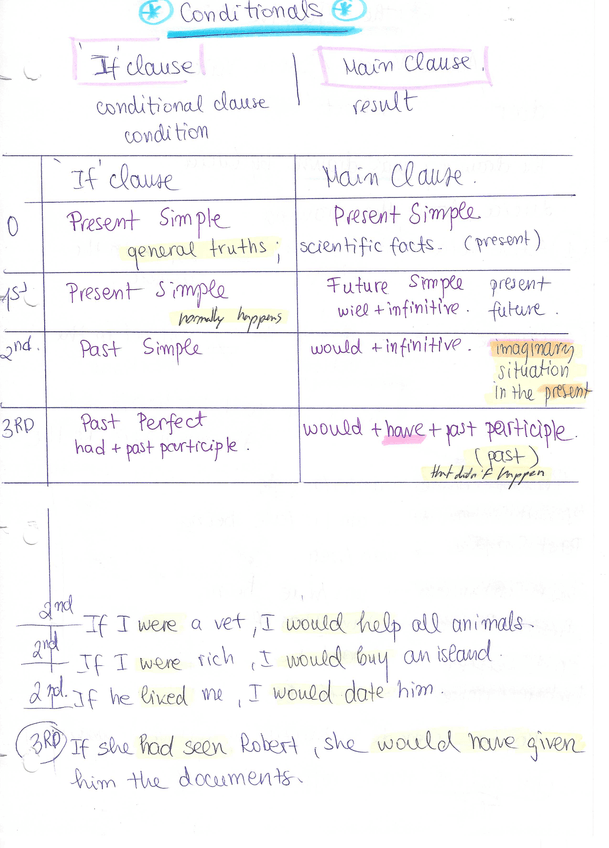 Conditionals
'If' clause
Main Clause.
conditional clause
result
condition
'If' clause
Main Clause.
0
Present Simple
Present Simple
general truths;
scientific facts. (present)
1st
Present Simple
Future Simple present
normally happens
will + infinitive. future.
2nd.
Past Simple
would + infinitive. imaginary
situation
in the present
3RD
Past Perfect
would + have + past participle.
had + past participle.
(past)
that didn't happen
2nd
If I were a vet, I would help all animals.
2nd
If I were rich, I would buy an island.
2nd.
If he liked me, I would date him.
3RD
If she had seen Robert, she would have given
him the documents.